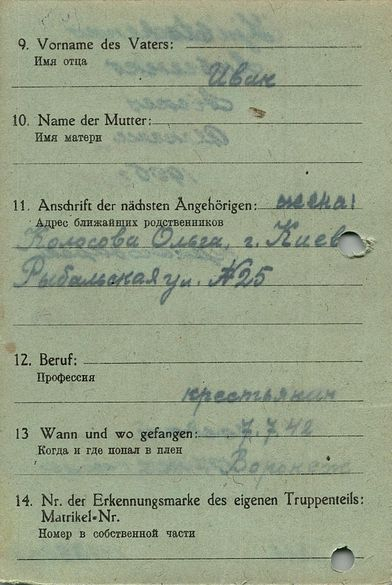 9. Vorname des Vaters:
Имя отца
Иван
10. Name der Mutter:
Имя матери
11. Anschrift der nächsten Angehörigen: жена:
Адрес ближайщих родственников
Колосова Ольга, г. Киев
Рыбальская ул. №25
12. Beruf:
Профессия
крестьянин
13 Wann und wo gefangen: 7.7.42
Когда и где попал в плен
Воронеж
14. Nr. der Erkennungsmarke des eigenen Truppenteils:
Matrikel-Nr.
Номер в собственной части